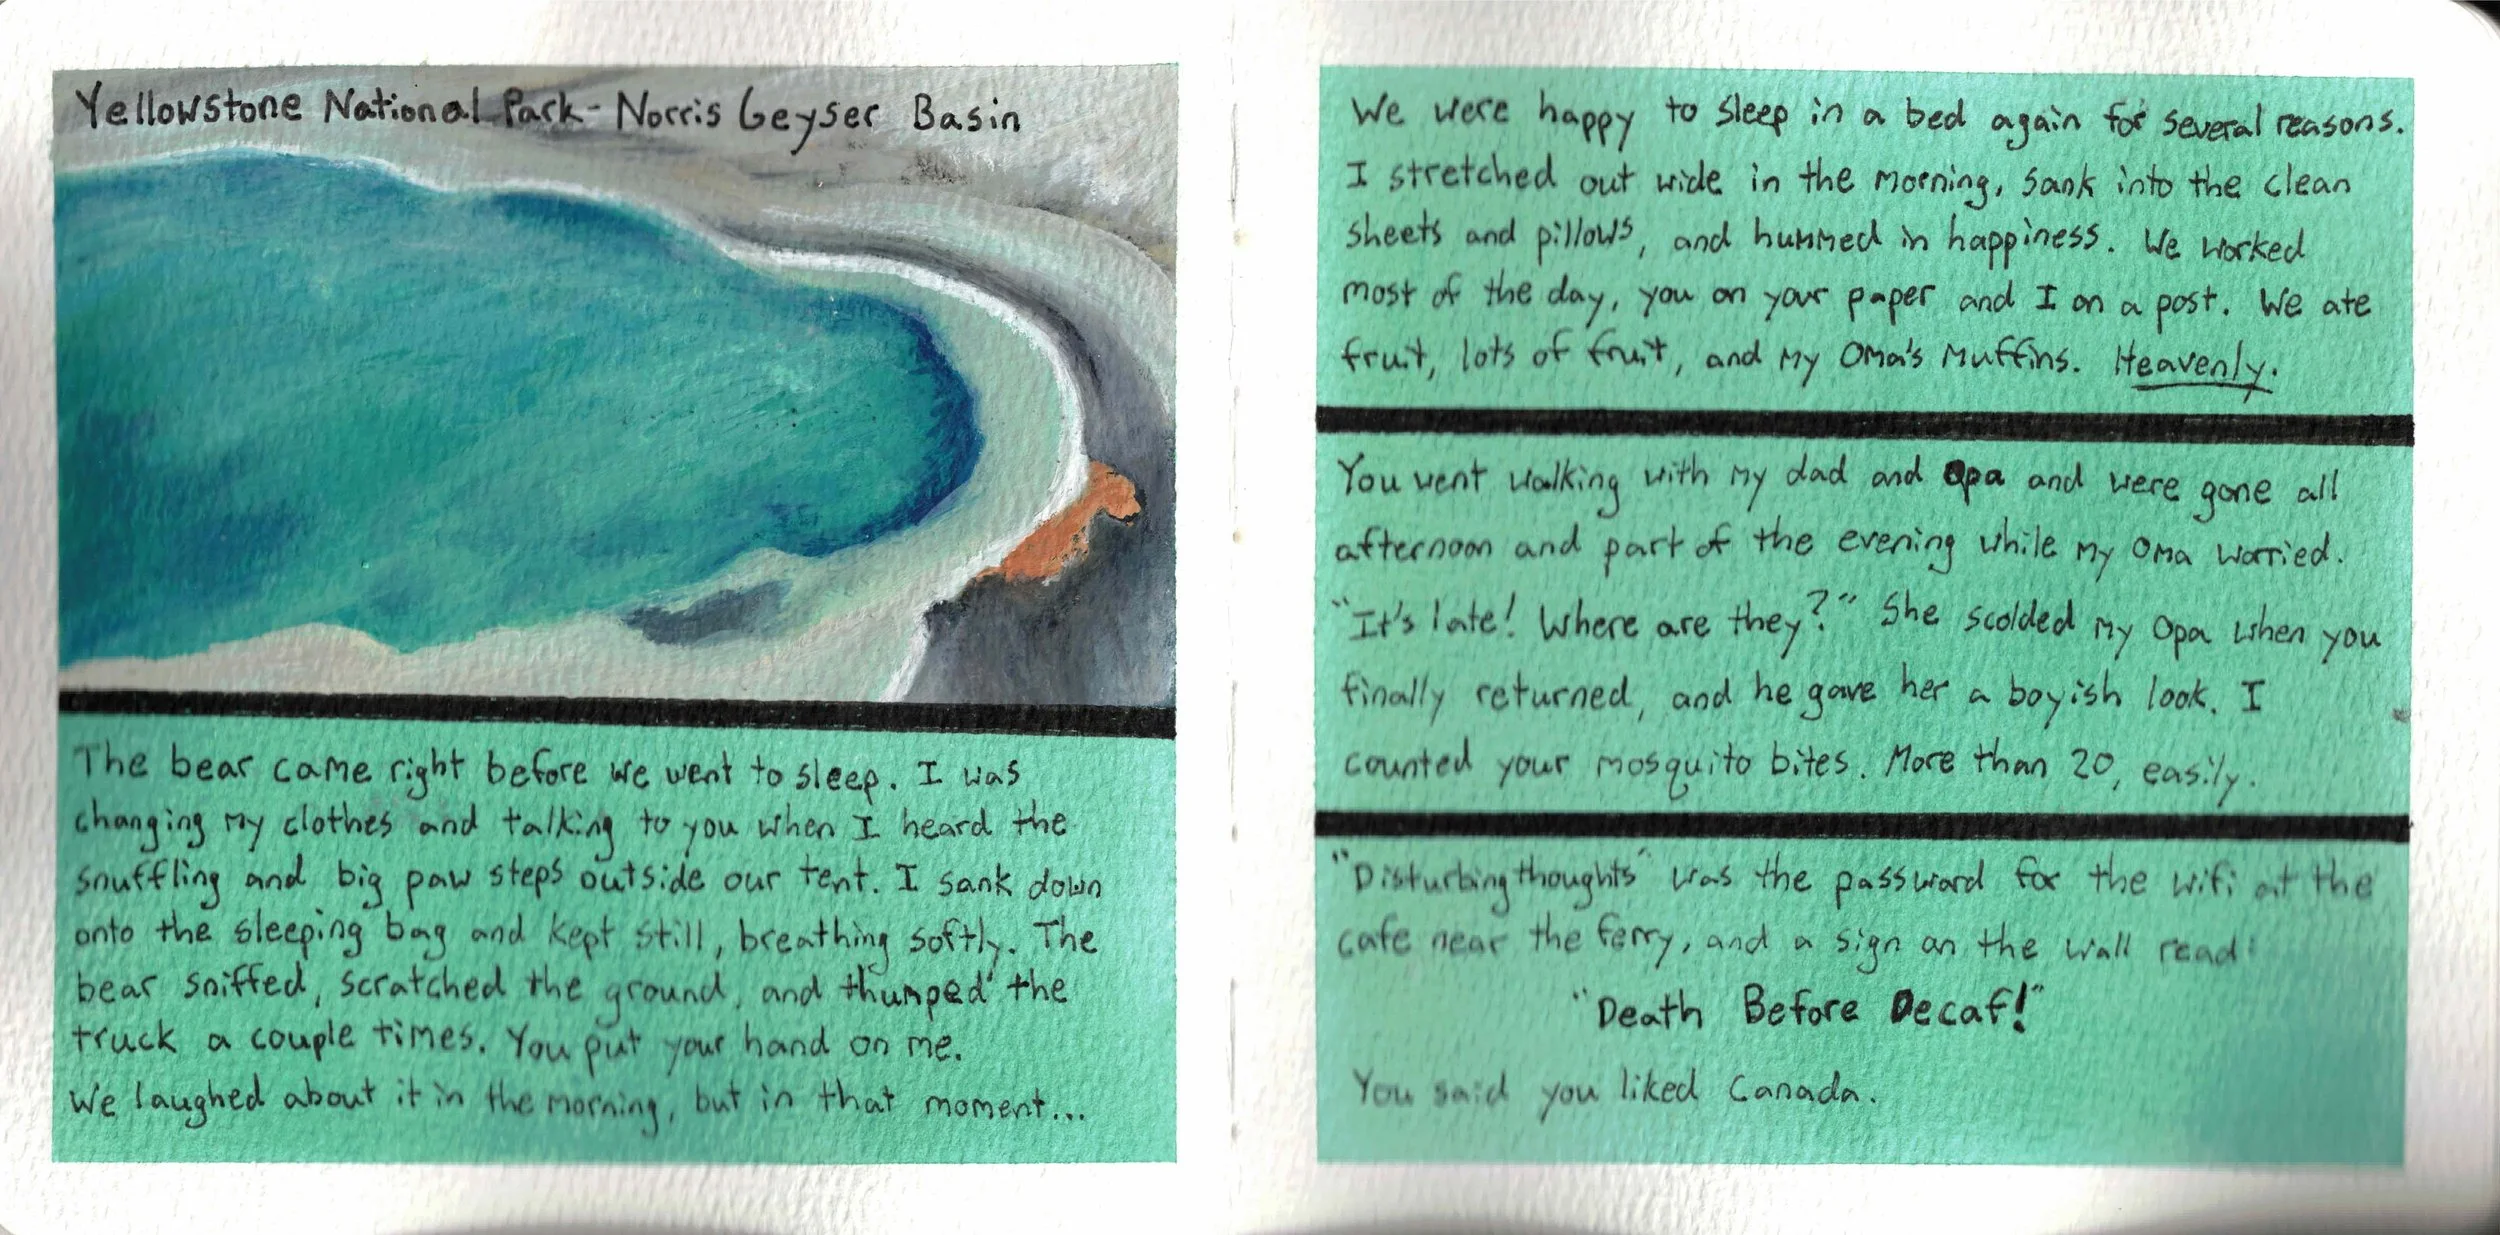 Yellowstone National Park - Norris Geyser Basin
The bear came right before we went to sleep. I was
changing my clothes and talking to you when I heard the
snuffling and big paw steps outside our tent. I sank down
onto the sleeping bag and kept still, breathing softly. The
bear sniffed, scratched the ground, and thumped the
truck a couple times. You put your hand on me.
We laughed about it in the morning, but in that moment...
We were happy to sleep in a bed again for several reasons.
I stretched out wide in the morning, sank into the clean
sheets and pillows, and hummed in happiness. We worked
most of the day, you on your paper and I on a post. We ate
fruit, lots of fruit, and my Oma's muffins. Heavenly.
You went walking with my dad and Opa and were gone all
afternoon and part of the evening while my Oma worried.
"It's late! Where are they?" She scolded my Opa when you
finally returned, and he gave her a boyish look. I
counted your mosquito bites. More than 20, easily.
"Disturbingthoughts" was the password for the wifi at the
cafe near the ferry, and a sign on the wall read:
"Death Before Decaf!"
You said you liked Canada.